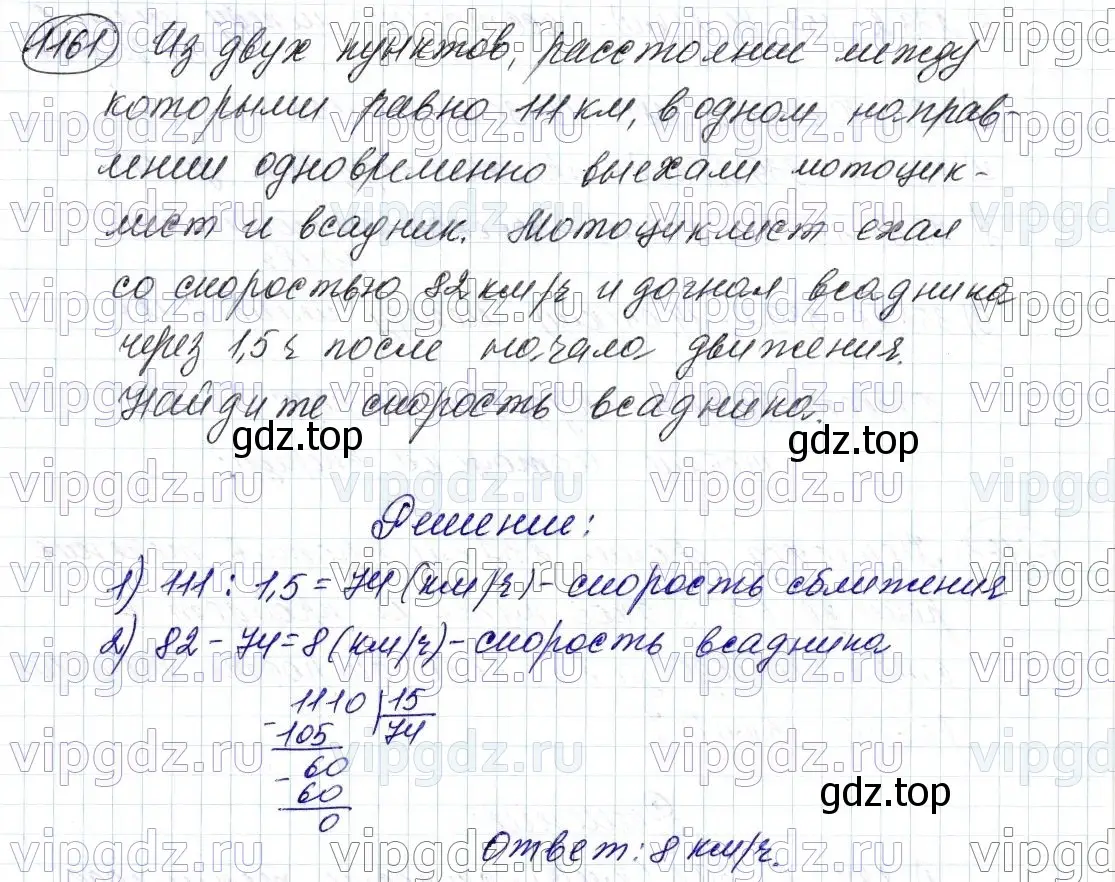 1161 Из двух пунктов, расстояние между
которыми равно 111 км, в одном направ-
лении одновременно выехали мотоцик-
лист и всадник. Мотоциклист ехал
со скоростью 82 км/ч и догнал всадника
через 1,5 ч после начала движения.
Найдите скорость всадника.
gdz.top gdz.top
Решение:
1) 111 : 1,5 = 74 (км/ч) - скорость сближения
2) 82 - 74 = 8 (км/ч) - скорость всадника
1110 | 15
- 105 74
60
- 60
0
gdz.top
Ответ: 8 км/ч.
vipgdz.ru